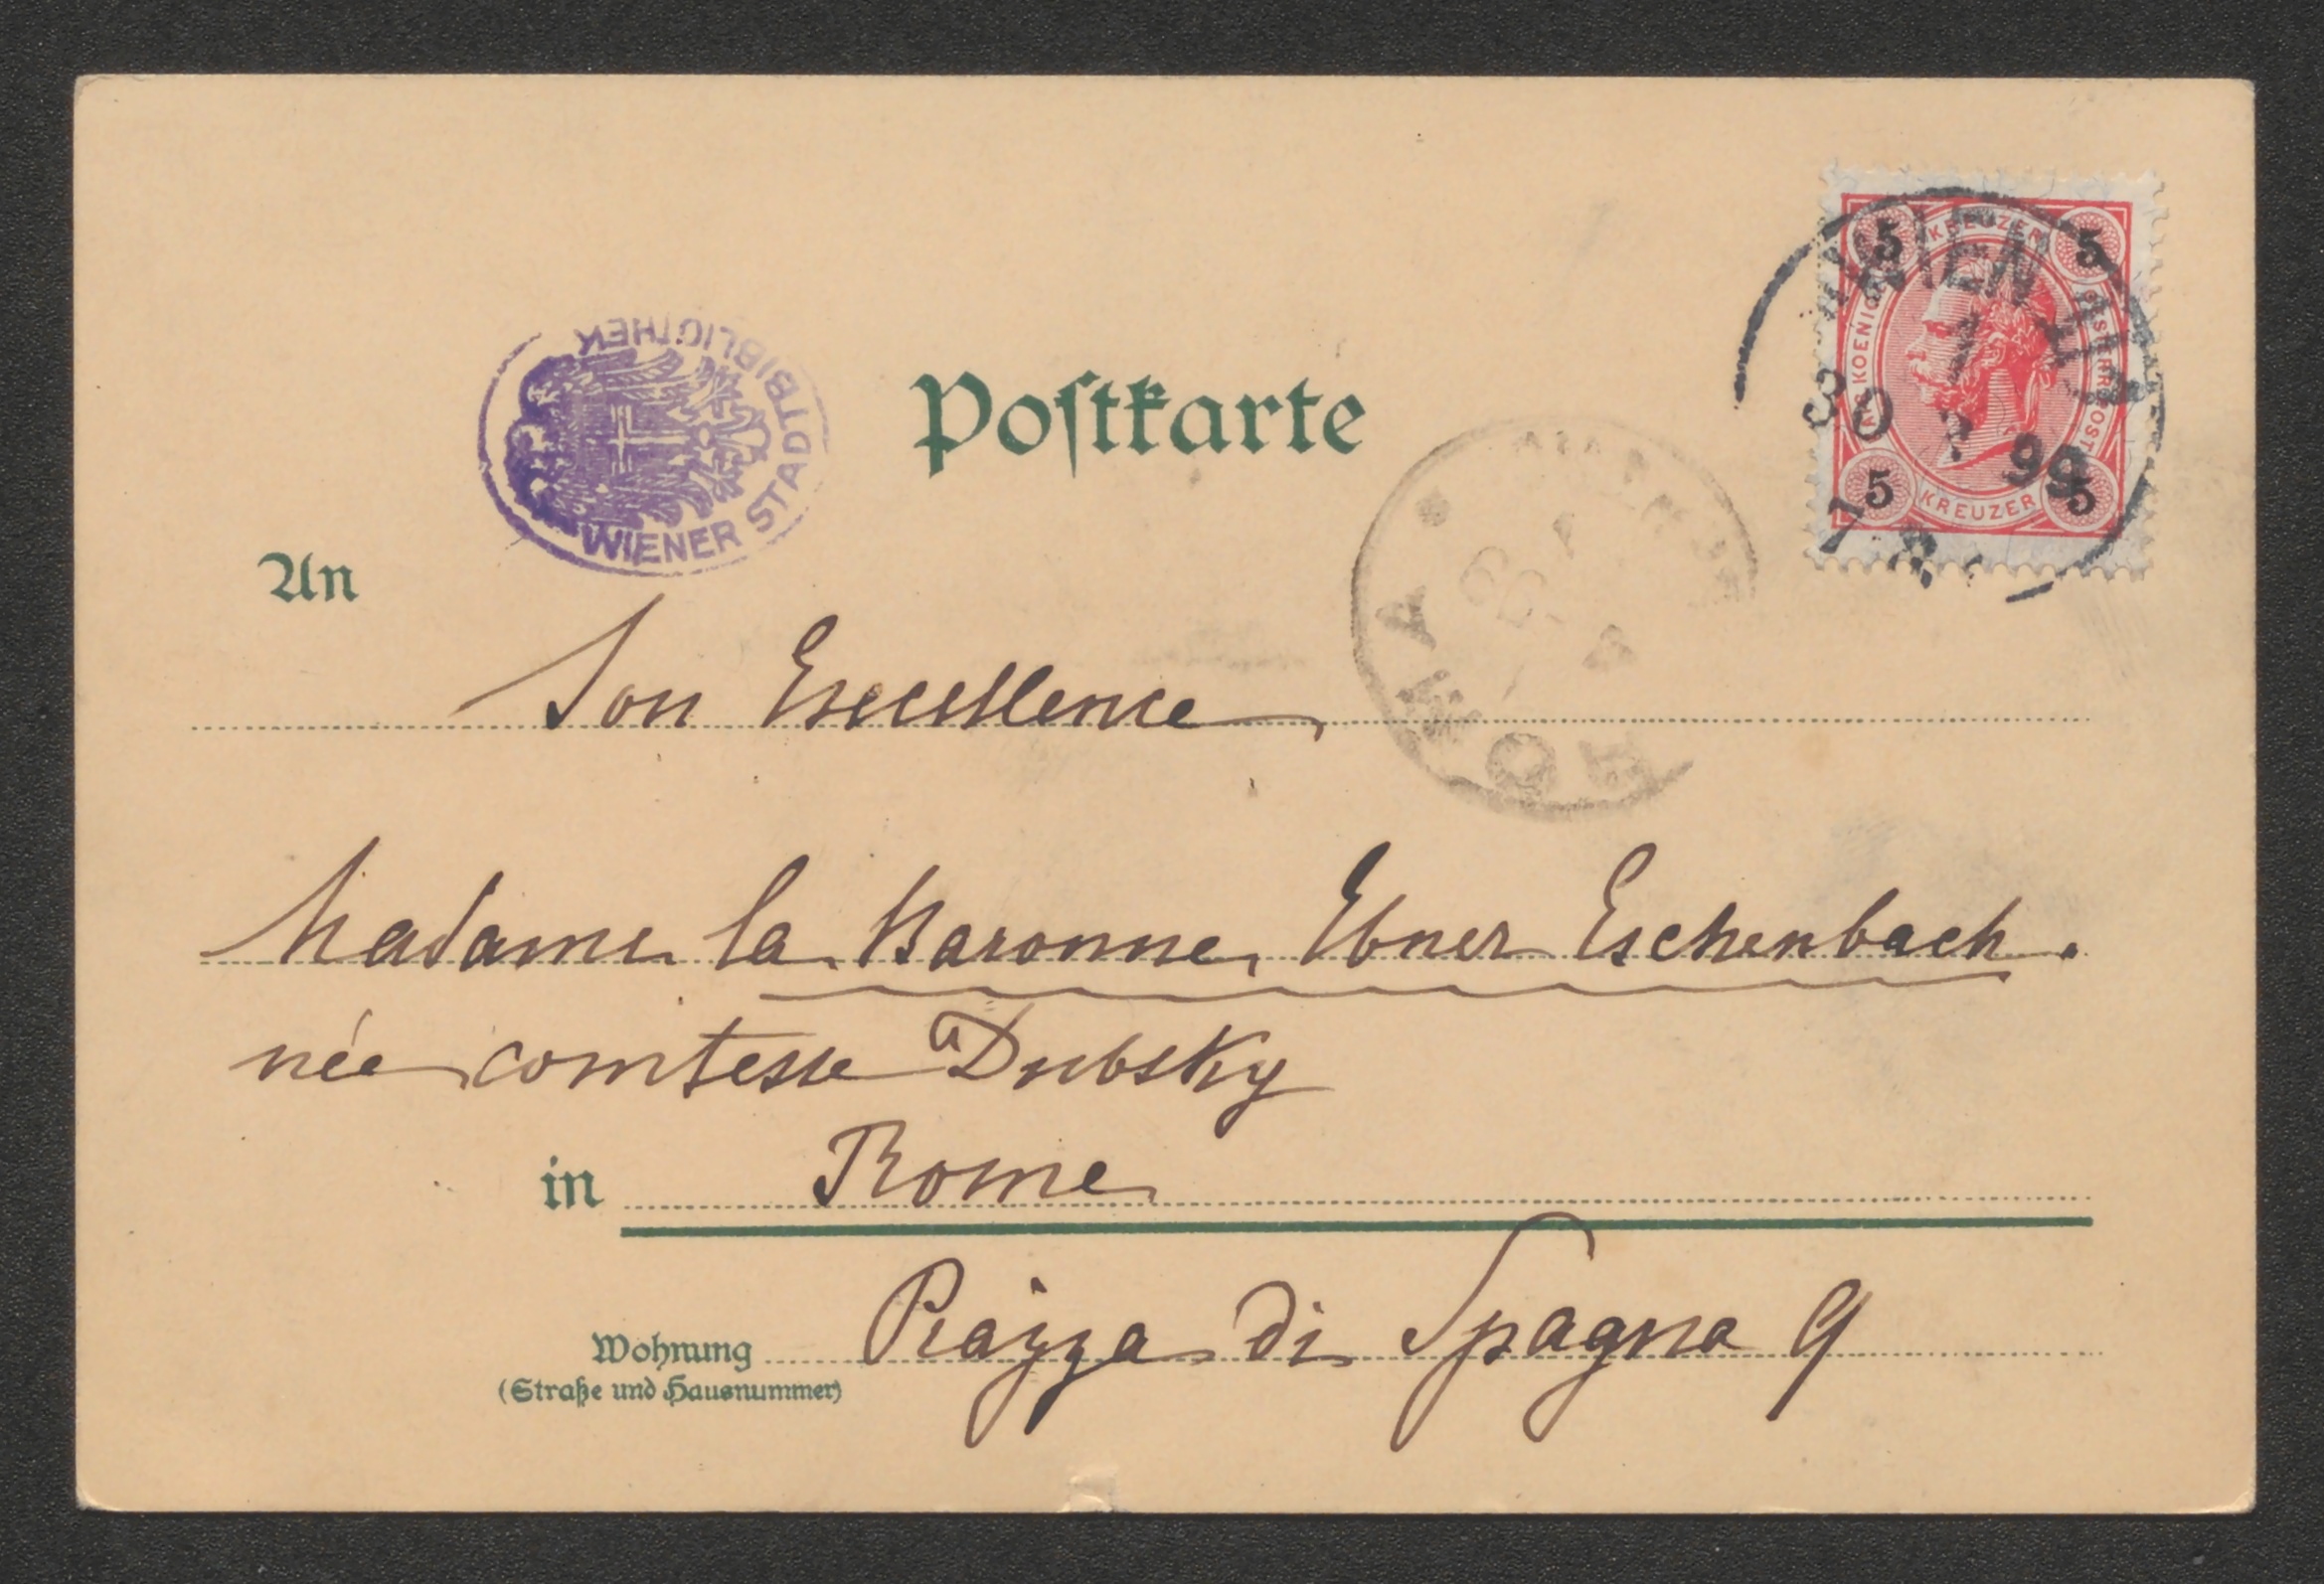 Postkarte
WIENER STADTBIBLIOTHEK
KREUZER
5 5
5 5
KREUZER
WIEN
99
ROMA
An
Son Excellence
Madame la Baronne Ebner Eschenbach.
née comtesse Dubsky
in Rome
Piazza di Spagna 9
Wohnung
(Straße und Hausnummer)